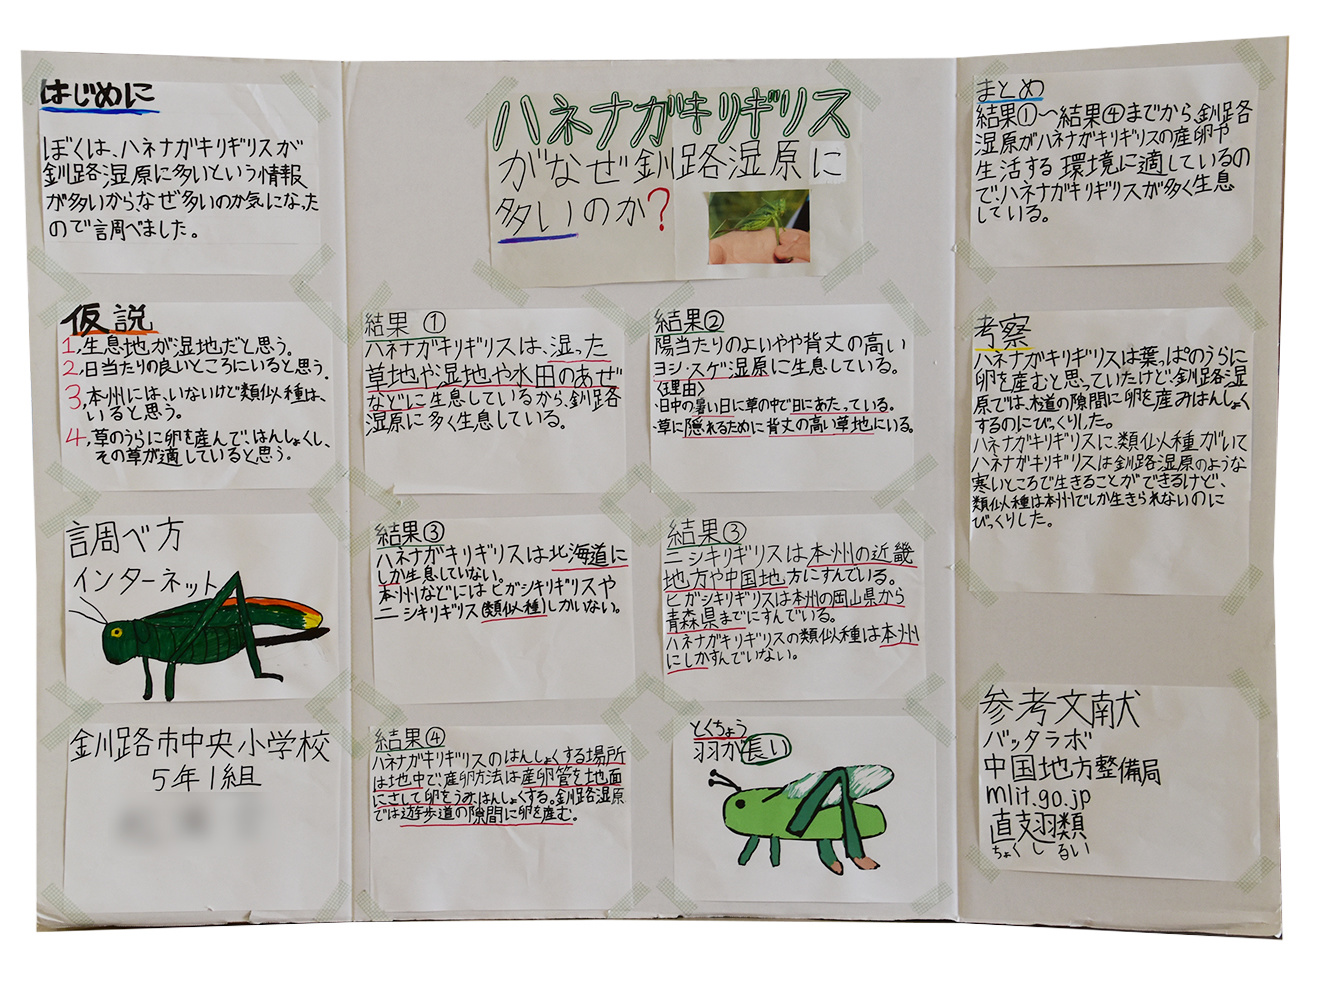 はじめに
ぼくは、ハネナガキリギリスが
釧路湿原に多いという情報
が多いからなぜ多いのか気になった
ので調べました。
仮説
1,生息地が湿地だと思う。
2,日当たりの良いところにいると思う。
3,本州には、いないけど類似種は、
いると思う。
4,草のうらに卵を産んで、はんしょくし、
その草が適していると思う。
調べ方
インターネット
釧路市中央小学校
5年1組
ハネナガキリギリス
がなぜ釧路湿原に
多いのか?
結果①
ハネナガキリギリスは、湿った
草地や湿地や水田のあぜ
などに生息しているから、釧路
湿原に多く生息している。
結果②
陽当たりのよいやや背丈の高い
ヨシ・スゲ湿原に生息している。
〈理由〉
・日中の暑い日に草の中で日にあたっている。
・草に隠れるために背丈の高い草地にいる。
結果③
ハネナガキリギリスは北海道に
しか生息していない。
本州などにはヒガシキリギリスや
ニシキリギリス(類似種)しかいない。
結果③
ニシキリギリスは本州の近畿
地方や中国地方にすんでいる。
ヒガシキリギリスは本州の岡山県から
青森県までにすんでいる。
ハネナガキリギリスの類似種は本州
にしかすんでいない。
結果④
ハネナガキリギリスのはんしょくする場所
は地中で、産卵方法は産卵管を地面
にさして卵をうみ、はんしょくする。釧路湿原
では遊歩道の隙間に卵を産む。
とくちょう
羽が長い
まとめ
結果①〜結果④までから、釧路
湿原がハネナガキリギリスの産卵や
生活する環境に適しているの
で、ハネナガキリギリスが多く生息
している。
考察
ハネナガキリギリスは葉っぱのうらに
卵を産むと思っていたけど、釧路湿
原では、木道の隙間に卵を産みはんしょく
するのにびっくりした。
ハネナガキリギリスに、類似種がいて
ハネナガキリギリスは釧路湿原のような
寒いところで生きることができるけど、
類似種は本州でしか生きられないのに
びっくりした。
参考文献
バッタラボ
中国地方整備局
mlit.go.jp
直翅類
ちょくしるい